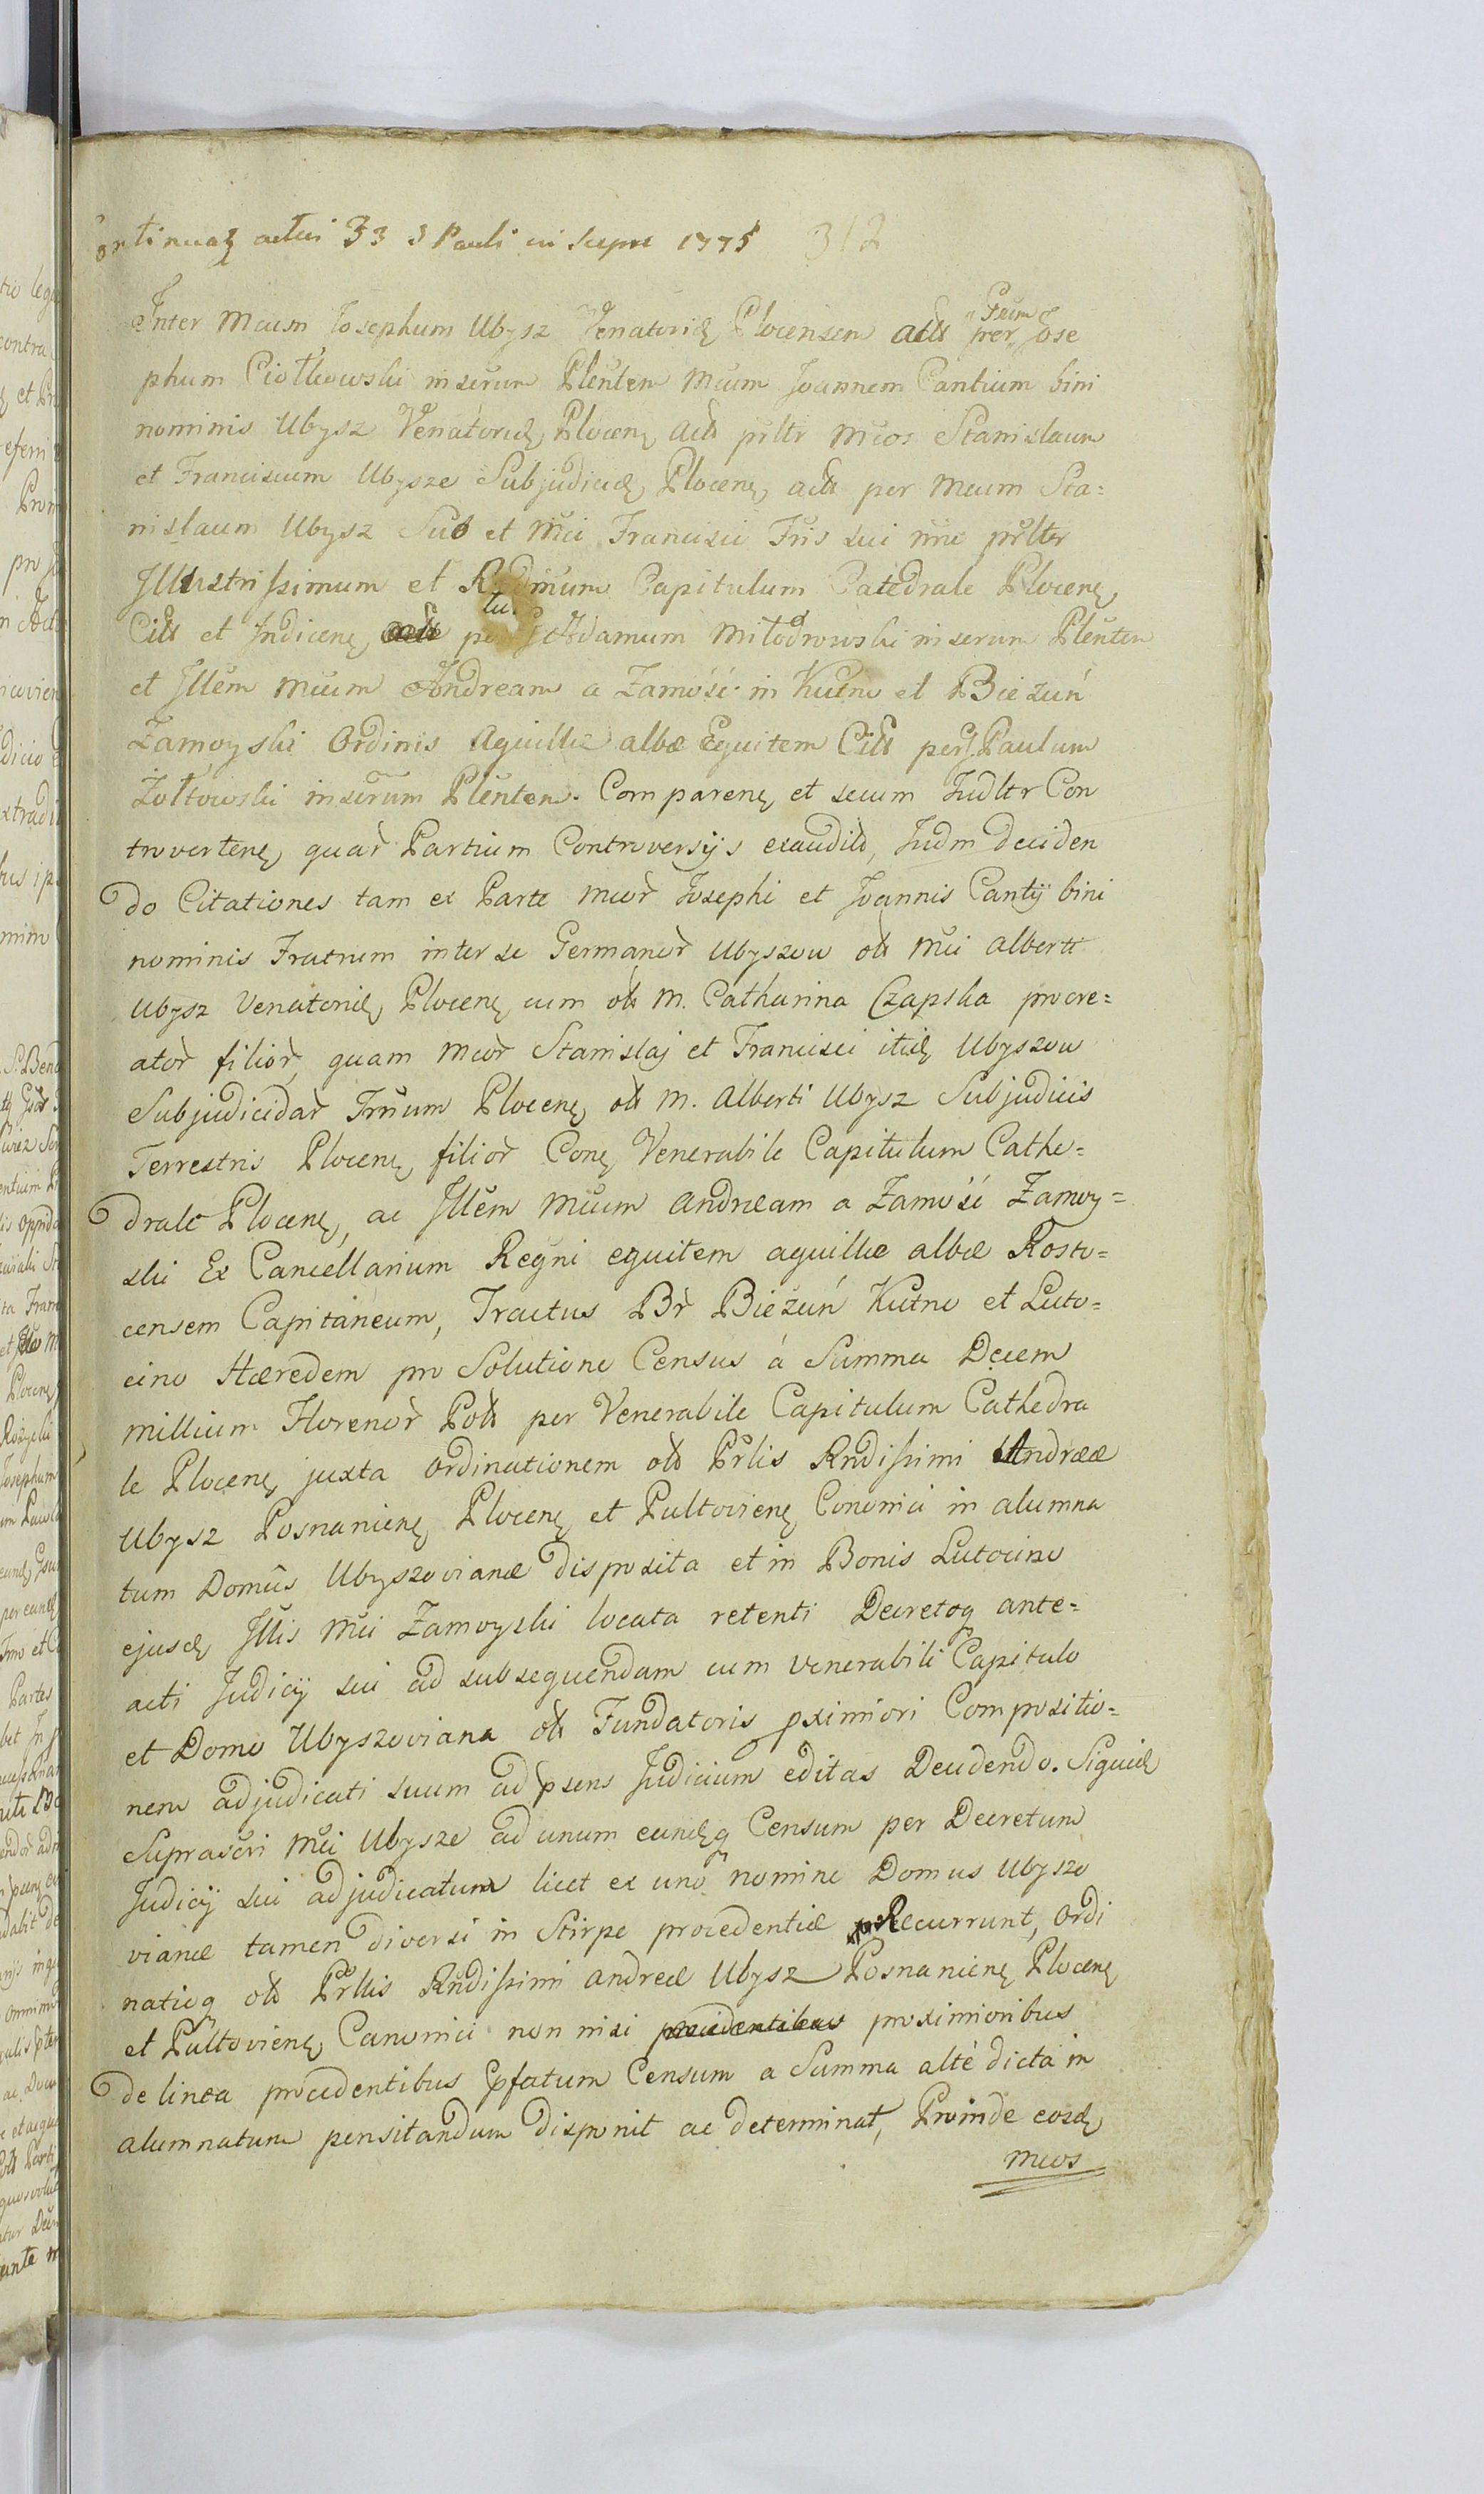 ontinuaõ actus 33 S Pauli in Sierpre 1775 312
Inter Mcum Josephum Ubysz Venatorid Plocensem actt per Gsum Jose
phum Ciołkowski inserum Plenten Mcum Joannem Cantium bini
nominis Ubysz Venatorid Plocen actt prltr Mcos Stanislaum
et Franciscum Ubysze Subjudicid Plocen actt per Mcum Sta=
nislaum Ubysz Suo et Mci Francisci Fris sui nne prltr
Illustrissimum et Rndmum Capitulum Catedrale Plocen
Citt et Indicen per Adamum Miłodrowski inserum Plenten
et Illem Mcum Andream a Zamość in Kutno et Bieżuń
Zamoyski Ordinis Aquillæ albæ Equitem Citt per Paulum
Żołtowski inserum Plenten. Comparen et secum Judltr Con
troverten, quar Partium Controversijs exaudito, Judm deciden
do Citationes tam ex Parte Mcor Josephi et Joannis Cantij bini
nominis Fratrum inter se Germanor Ubyszow ott Mci Alberti
Ubysz Venatorid Plocen cum ott M. Catharina Czapska procre=
ator filior, quam Mcor Stanislaj et Francisci itid Ubyszow
Subjudicidar Frum Plocen ott M. Alberti Ubysz Subjudicis
Terrestris Plocen filior Con Venerabile Capitulum Cathe=
drale Plocen, ac Illem Mcum Andream a Zamość Zamoy=
ski Ex Cancellarium Regni equitem aquillæ albæ Rosto=
censem Capitaneum, Tractus Br Bieżuń Kutno et Luto=
cino Hæredem pro Solutione Census á Summa Decem
millium Florenor Poltt per Venerabile Capitulum Cathedra
le Plocen juxta ordinationem ott Prlis Rndissimi Andreæ
Ubysz Posnanien Plocen et Pultovien Cononici in alumna
tum Domûs Ubyszovianæ disposita et in Bonis Lutocino
ejusd Illis Mci Zamoyski locata retenti Decretoq ante=
acti Judicij sui ad subsequendam cum venerabili Capitulo
et Domo Ubyszoviana ott Fundatoris pximiori Compositio=
nem adjudicati suum ad psens Judicium editas Decidendo. Siquid
Suprascri Mci Ubysze ad unum eundq Censum per Decretum
Judicij sui adjudicatum licet ex uno nomine Domus Ubyszo
vianæ tamen diversi in Stirpe procedentiæ Recurrunt, ordi
natioq ott Prllis Rndissimi Andreæ Ubysz Posnanien Plocen
et Pultovien Canonici non nisi proximioribus
de linea procedentibus pfatum Censum a Summa alté dicta in
alumnatum pensitandum disponit ac determinat, Proinde eosd
Mcos